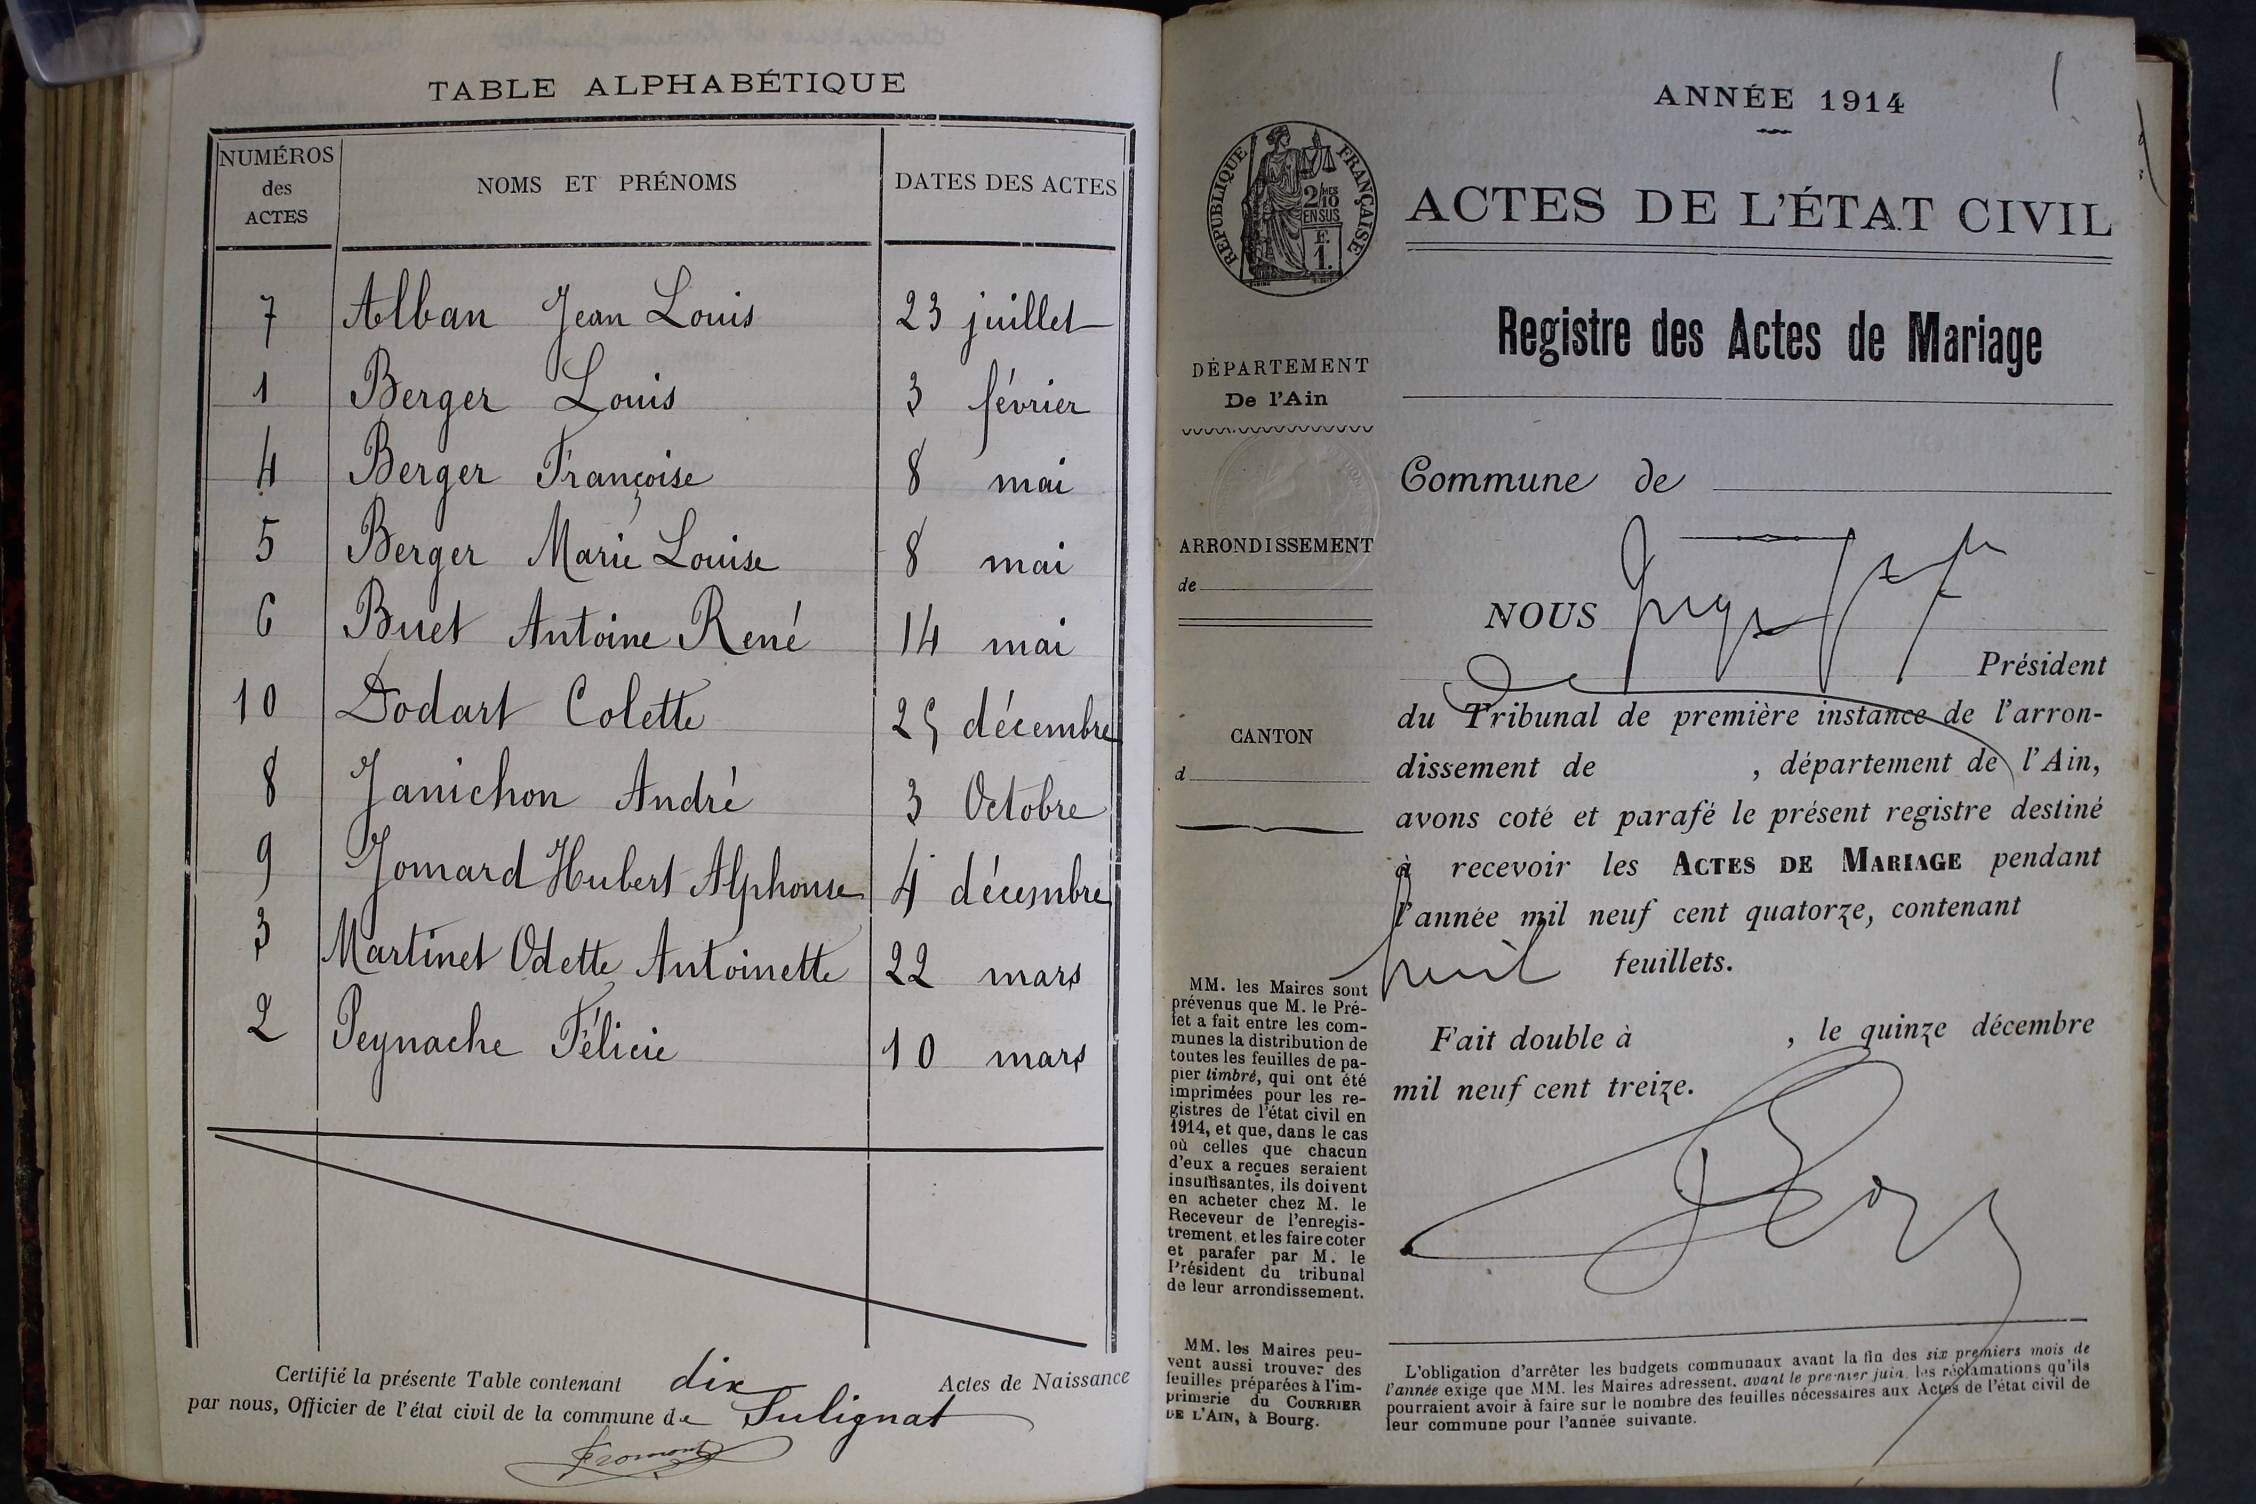 TABLE ALPHABÉTIQUE
NUMÉROS
des
ACTES
NOMS ET PRÉNOMS
DATES DES ACTES
7 Alban Jean Louis 23 juillet
1 Berger Louis 3 février
4 Berger Françoise 8 mai
5 Berger Marie Louise 8 mai
6 Buet Antoine René 14 mai
10 Dodart Colette 25 décembre
8 Janichon André 3 Octobre
9 Jomard Hubert Alphonse 4 décembre
3 Martinet Odette Antoinette 22 mars
2 Peynache Félicie 10 mars
Certifié la présente Table contenant dix Actes de Naissance
par nous, Officier de l'état civil de la commune de Sulignat
Fromont
ANNÉE 1914
RÉPUBLIQUE FRANÇAISE
2/10
MES
EN SUS
F.
1.
ACTES DE L'ÉTAT CIVIL
Registre des Actes de Mariage
DÉPARTEMENT
De l'Ain
ARRONDISSEMENT
de
CANTON
d
MM. les Maires sont
prévenus que M. le Pré-
fet a fait entre les com-
munes la distribution de
toutes les feuilles de pa-
pier timbré, qui ont été
imprimées pour les re-
gistres de l'état civil en
1914, et que, dans le cas
où celles que chacun
d'eux a reçues seraient
insuffisantes, ils doivent
en acheter chez M. le
Receveur de l'enregis-
trement, et les faire coter
et parafer par M. le
Président du tribunal
de leur arrondissement.
MM. les Maires peu-
vent aussi trouver des
feuilles préparées à l'im-
primerie du COURRIER
DE L'AIN, à Bourg.
Commune de
NOUS
Président
du Tribunal de première instance de l'arron-
dissement de , département de l'Ain,
avons coté et parafé le présent registre destiné
à recevoir les ACTES DE MARIAGE pendant
l'année mil neuf cent quatorze, contenant
huit feuillets.
Fait double à , le quinze décembre
mil neuf cent treize.
L'obligation d'arrêter les budgets communaux avant la fin des six premiers mois de
l'année exige que MM. les Maires adressent, avant le premier juin, les réclamations qu'ils
pourraient avoir à faire sur le nombre des feuilles nécessaires aux Actes de l'état civil de
leur commune pour l'année suivante.